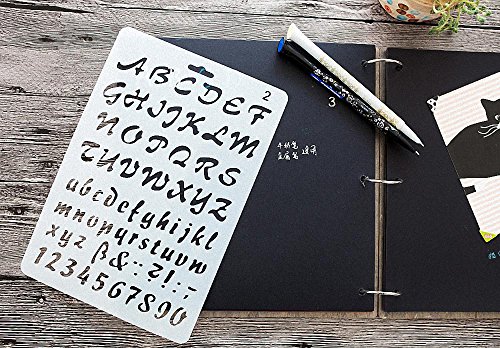 2
ABCDEF
GHIJKLM
NOPQRS
TUVWXYZ
abcdefghijkl
mnopqrstuvw
xyz ß&
1234567890
3
牛奶笔
金属笔 适用